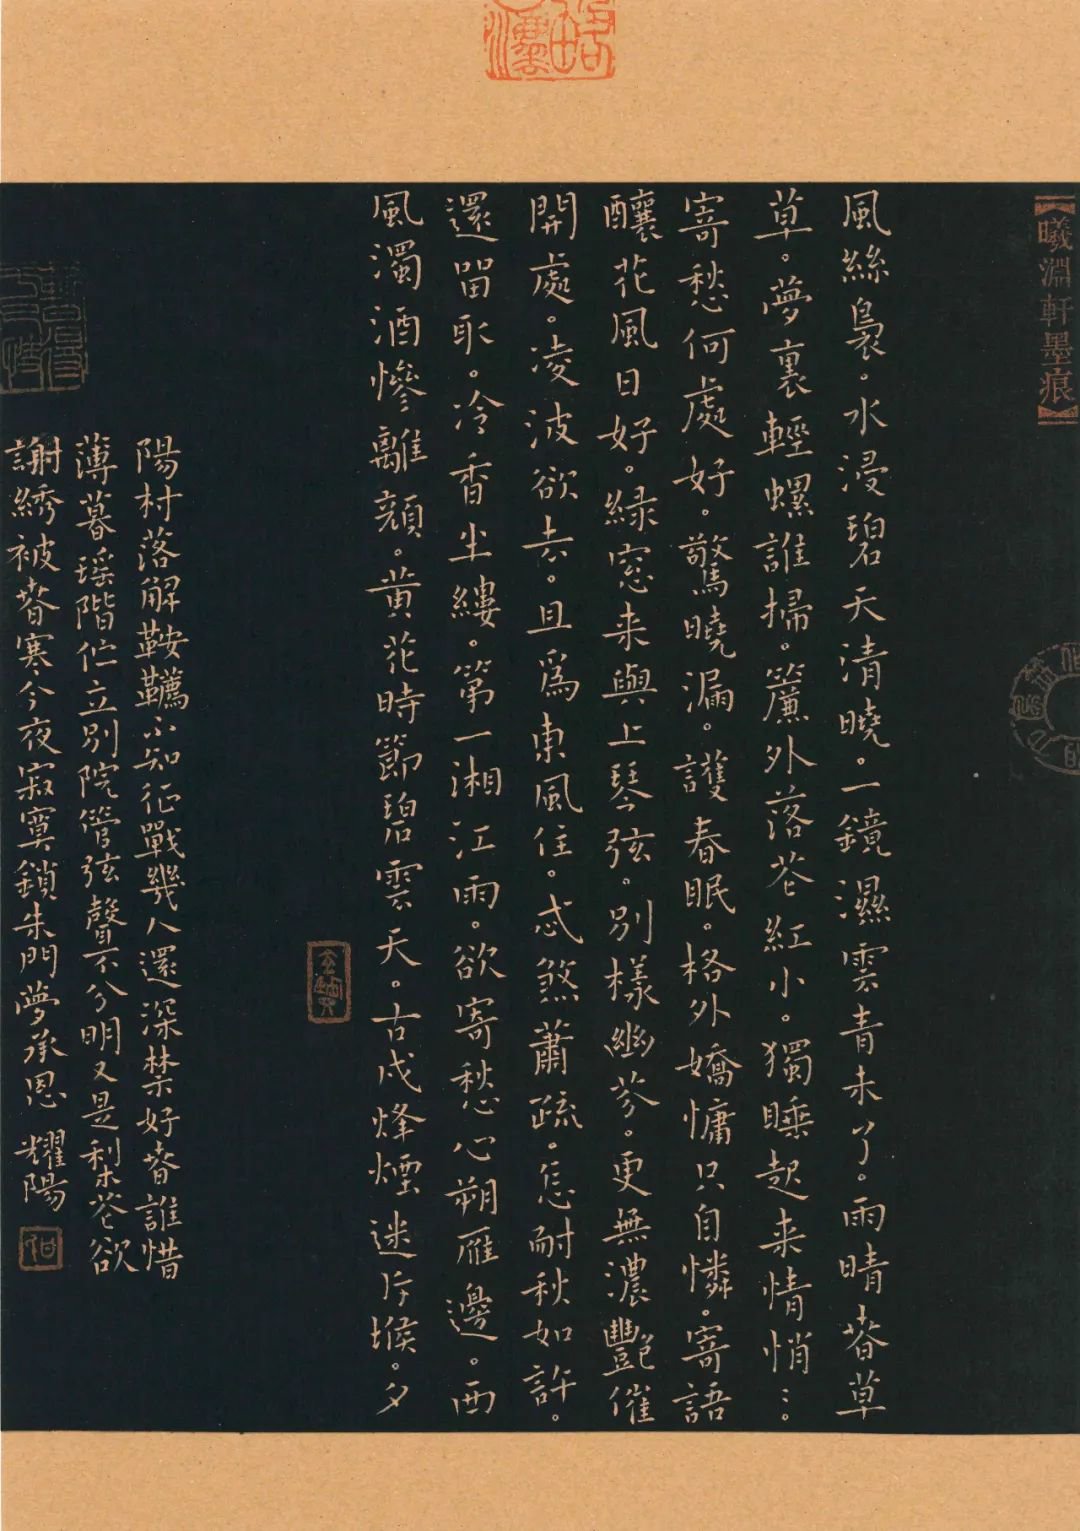 曦淵軒墨痕
風絲裊。水浸碧天清曉。一鏡濕雲青未了。雨晴春草
草。夢裏輕螺誰掃。簾外落花紅小。獨睡起来情悄…。
寄愁何處好。驚曉漏。護春眠。格外嬌慵只自憐。寄語
釀花風日好。緑窓来與上琴弦。別樣幽芬。更無濃豔催
開處。凌波欲去。且為東風住。忒煞蕭疏。怎耐秋如許。
還留取。冷香半縷。第一湘江雨。欲寄愁心朔雁邊。西
風濁酒慘離顔。黄花時節碧雲天。古戍烽煙迷斥堠。夕
陽村落解鞍韉不知征戰幾人還深禁好春誰惜
薄暮瑶階伫立別院管弦聲不分明又是梨花欲
謝綉被春寒今夜寂寞鎖朱門夢承恩 耀陽